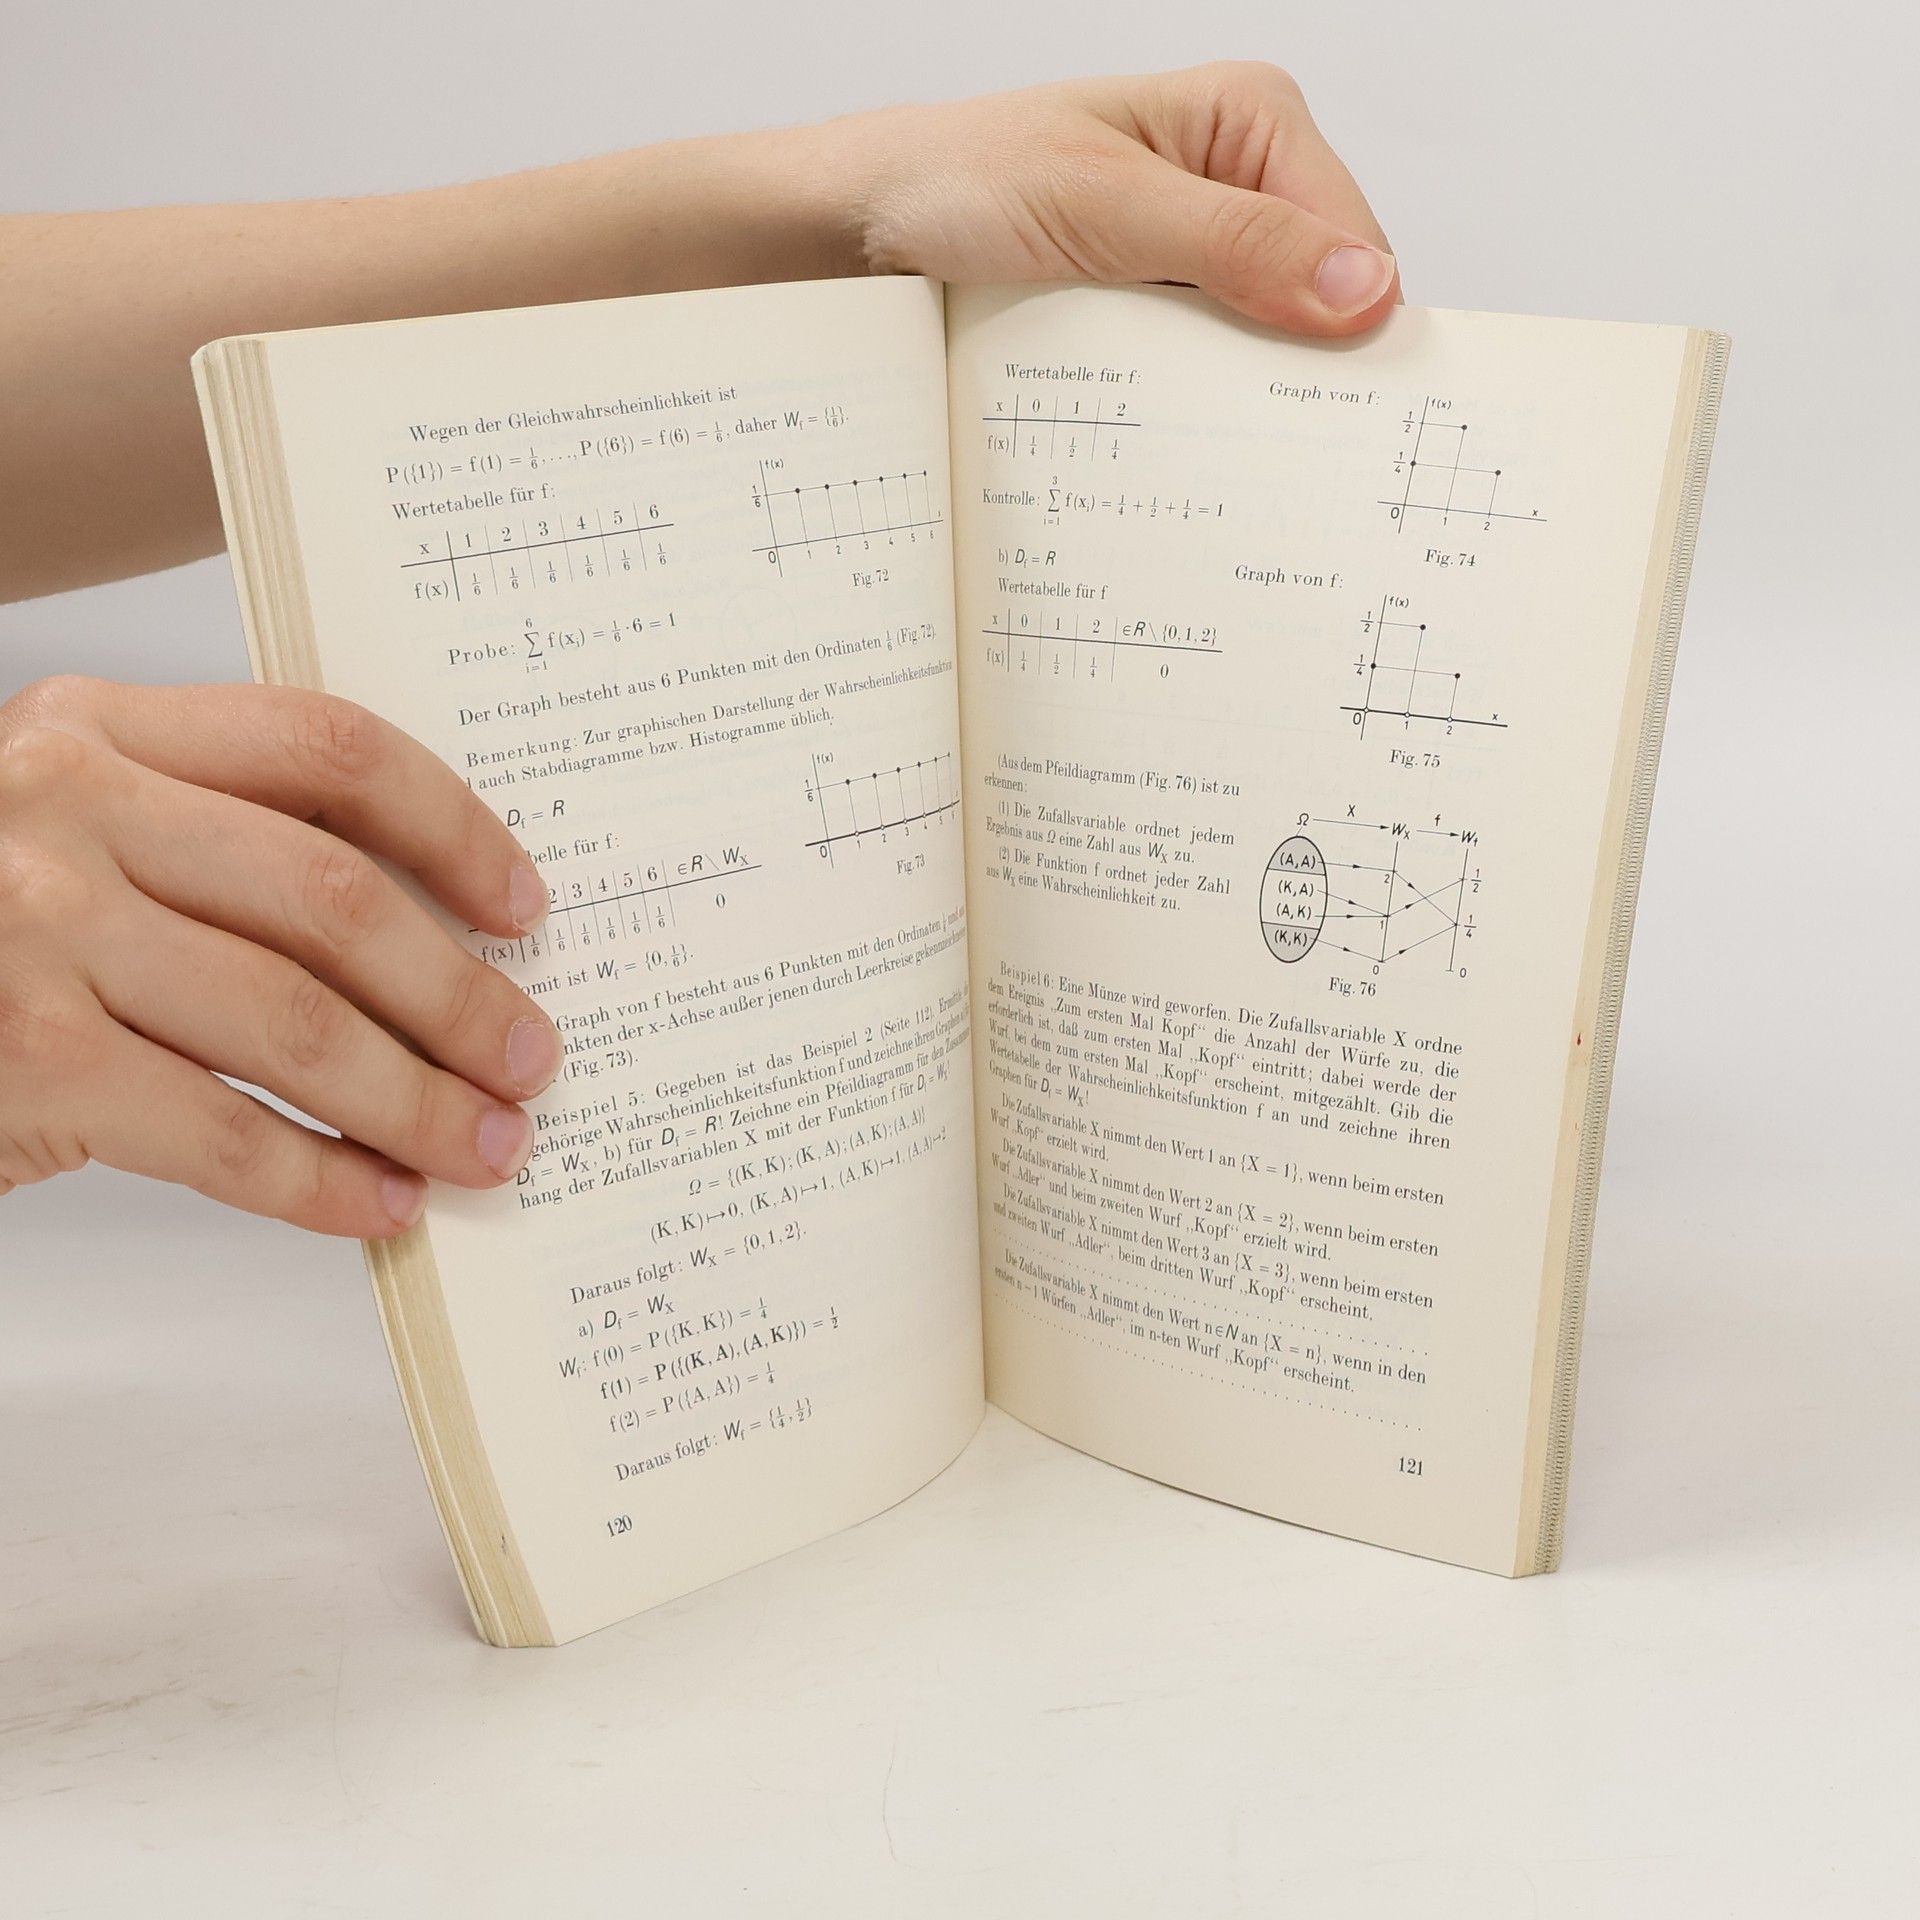 Wegen der Gleichwahrscheinlichkeit ist
P({1}) = f(1) = 1/6, ..., P({6}) = f(6) = 1/6, daher Wf = {1/6}.
Wertetabelle für f:
x | 1 | 2 | 3 | 4 | 5 | 6
f(x) | 1/6 | 1/6 | 1/6 | 1/6 | 1/6 | 1/6
f(x)
1/6
0 1 2 3 4 5 6
Fig. 72
Probe: 6 ∑ i=1 f(xi) = 1/6 · 6 = 1
Der Graph besteht aus 6 Punkten mit den Ordinaten 1/6 (Fig. 72).
Bemerkung: Zur graphischen Darstellung der Wahrscheinlichkeitsfunktion
auch Stabdiagramme bzw. Histogramme üblich.
Df = R
belle für f:
2 | 3 | 4 | 5 | 6 | ∈R \ WX
f(x) | 1/6 | 1/6 | 1/6 | 1/6 | 1/6 | 1/6 | 0
f(x)
1/6
0 1 2 3 4 5 6
Fig. 73
omit ist Wf = {0, 1/6}.
Graph von f besteht aus 6 Punkten mit den Ordinaten 1/6 und
nkten der x-Achse außer jenen durch Leerkreise gekennzeichneten
(Fig. 73).
Beispiel 5: Gegeben ist das Beispiel 2 (Seite 112). Ermittle
gehörige Wahrscheinlichkeitsfunktion f und zeichne ihren Graphen
Df = WX, b) für Df = R! Zeichne ein Pfeildiagramm für den Zusammen
hang der Zufallsvariablen X mit der Funktion f für Df = WX!
Ω = {(K, K); (K, A); (A, K); (A, A)}
(K, K)↦0, (K, A)↦1, (A, K)↦1, (A, A)↦2
Daraus folgt: WX = {0, 1, 2}.
a) Df = WX
Wf: f(0) = P({K, K}) = 1/4
f(1) = P({(K, A), (A, K)}) = 1/2
f(2) = P({A, A}) = 1/4
Daraus folgt: Wf = {1/4, 1/2}
120
Wertetabelle für f:
x | 0 | 1 | 2
f(x) | 1/4 | 1/2 | 1/4
Graph von f:
f(x)
1/2
1/4
0 1 2 x
Fig. 74
Kontrolle: 3 ∑ i=1 f(xi) = 1/4 + 1/2 + 1/4 = 1
b) Df = R
Wertetabelle für f
x | 0 | 1 | 2 | ∈R \ {0, 1, 2}
f(x) | 1/4 | 1/2 | 1/4 | 0
Graph von f:
f(x)
1/2
1/4
0 1 2 x
Fig. 75
(Aus dem Pfeildiagramm (Fig. 76) ist zu
erkennen:
(1) Die Zufallsvariable ordnet jedem
Ergebnis aus Ω eine Zahl aus WX zu.
(2) Die Funktion f ordnet jeder Zahl
aus WX eine Wahrscheinlichkeit zu.
X f
Ω WX Wf
(A, A)
(K, A)
(A, K)
(K, K)
2
1
0
1/2
1/4
0
Fig. 76
Beispiel 6: Eine Münze wird geworfen. Die Zufallsvariable X ordne
dem Ereignis „Zum ersten Mal Kopf“ die Anzahl der Würfe zu, die
erforderlich ist, daß zum ersten Mal „Kopf“ eintritt; dabei werde der
Wurf, bei dem zum ersten Mal „Kopf“ erscheint, mitgezählt. Gib die
Wertetabelle der Wahrscheinlichkeitsfunktion f an und zeichne ihren
Graphen für Df = WX!
Die Zufallsvariable X nimmt den Wert 1 an {X = 1}, wenn beim ersten
Wurf „Kopf“ erzielt wird.
Die Zufallsvariable X nimmt den Wert 2 an {X = 2}, wenn beim ersten
Wurf „Adler“ und beim zweiten Wurf „Kopf“ erzielt wird.
Die Zufallsvariable X nimmt den Wert 3 an {X = 3}, wenn beim ersten
und zweiten Wurf „Adler“, beim dritten Wurf „Kopf“ erscheint.
Die Zufallsvariable X nimmt den Wert n∈N an {X = n}, wenn in den
ersten n − 1 Würfen „Adler“, im n-ten Wurf „Kopf“ erscheint.
121